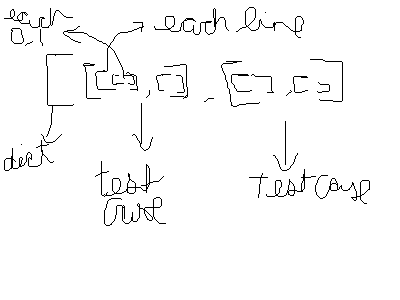 each
0,1
each line
[ [ [ [ ] ], [ ] ] , [ [ ], [ ] ]
dict
test
case
Test case